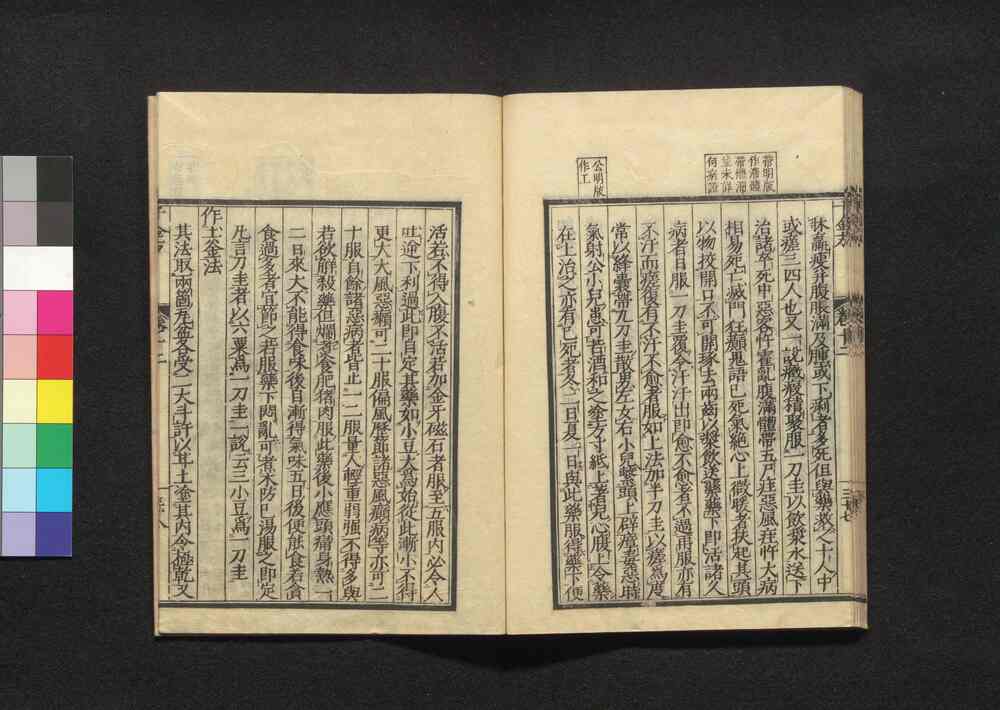 牀羸瘦并腹脹滿及腫或下痢者多死但與藥救之十人中
或瘥三四人也又一說癥瘕積聚服一刀圭以飲漿水送下
治諸卒死中惡客忤霍亂腹滿體帶五尸疰惡風疰忤大病
相易死亡滅門狂癲鬼語已死氣絕心上微煖者扶起其頭
以物挍開口不可開琢去兩齒以漿飲送藥藥下即活諸久
病者日服一刀圭覆令汗汗出即愈不愈者不過再服亦有
不汗而瘥復有不汗不愈者服如上法加半刀圭以瘥爲度
常以絳囊帶九刀圭散男左女右小兒繫頭上辟瘴毒惡時
氣射公小兒患可苦酒和之塗方寸紙上著兒心腹口令藥
在上治之亦有已死者冬二日夏一日與此藥服得藥下便
帶明版
作滯體
帶總源
並未詳
何病證
公明版
作工
活若不得入腹不活若加金牙磁石者服至五服內必令人
吐逆下利過此即自定其藥如小豆大爲始從此漸小不得
更大大風惡癩可二十服偏風歷節諸惡風癲病等亦可二
十服自餘諸惡病者皆止一二服量人輕重弱强不得多與
若飲觧殺藥但爛煮食肥猪肉服此藥後小應頭痛身熱一
二日來大不能得食味後自漸得氣味五日後便能食若貪
食過多者宜節之若服藥下悶亂可煮木防已湯服之即定
凡言刀圭者以六粟爲一刀圭一說云三小豆爲一刀圭
作土釜法
其法取兩箇瓦盆各受二大斗許以甘土塗其內令極乾又